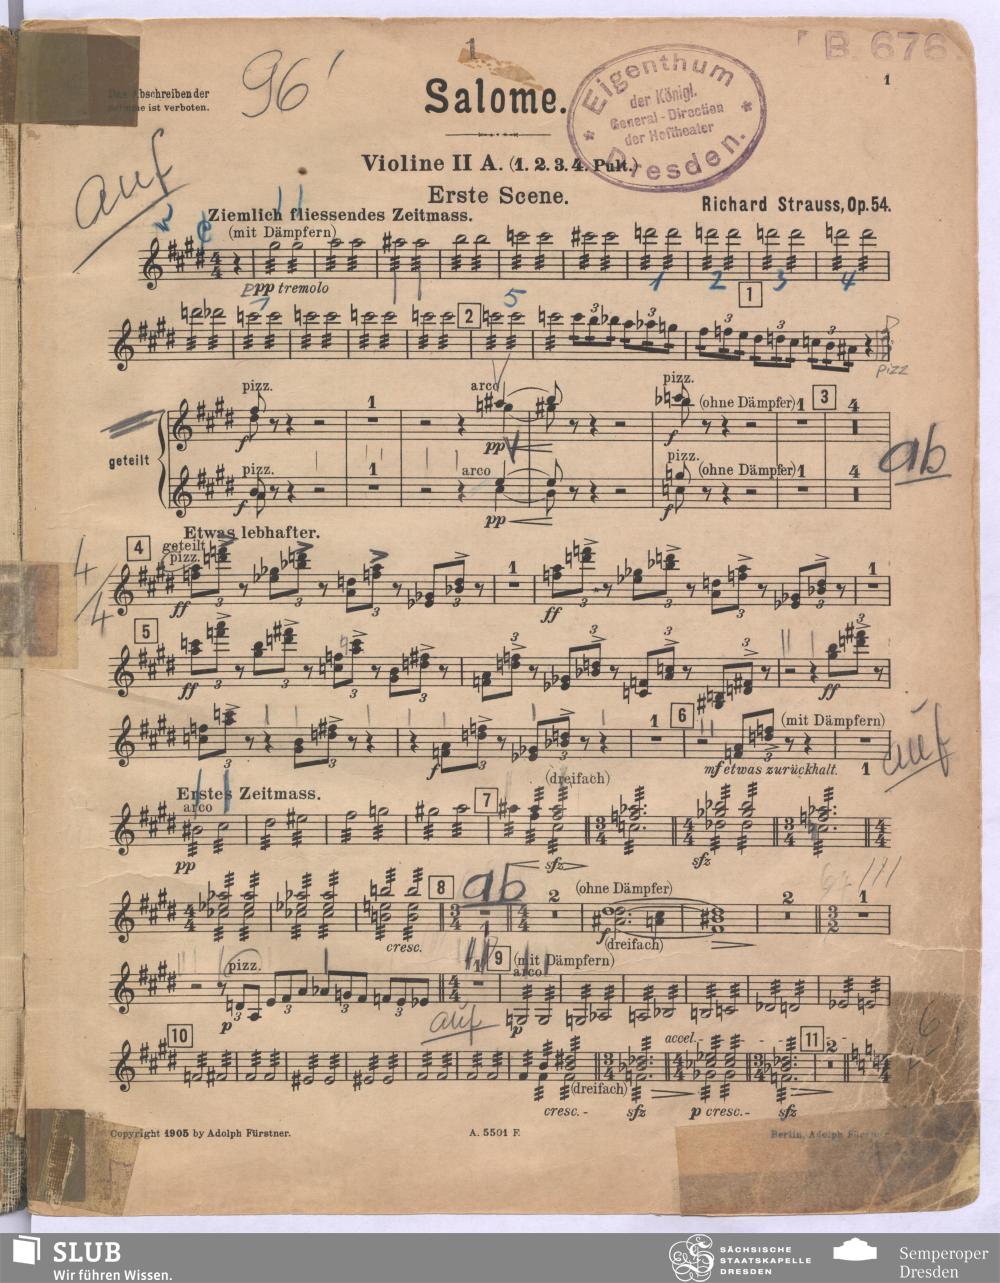 1
B. 676.
1
96'
Das Abschreiben der
Stimme ist verboten.
Salome.
Eigenthum
der Königl.
General-Direction
der Hoftheater
Dresden.
auf
Violine II A. (1. 2. 3. 4. Pult.)
Erste Scene.
Richard Strauss, Op. 54.
Ziemlich fliessendes Zeitmass.
(mit Dämpfern)
ppp tremolo
1 2 3 4
1
5
2
3 3 3 3
pizz
pizz. arco pizz. (ohne Dämpfer) 1 3 4
1
f pp f
geteilt
ab
pizz. arco pizz. (ohne Dämpfer) 1 4
1
f pp f
Etwas lebhafter.
4 geteilt
pizz.
4/4
ff 3 3 3 1 ff 3 3 3 1
5
ff 3 3 3 3 3 3 3 3 3 ff
6 (mit Dämpfern)
3 3 f 3 3 1 3 1
mf etwas zurückhalt.
auf
(dreifach)
Erstes Zeitmass.
arco
7
pp sfz sfz
8 ab (ohne Dämpfer)
2 2 1
cresc. 1 f (dreifach)
pizz. 1 9 (mit Dämpfern)
arco
p 3 3 3 3 p
auf
10 accel. 11 2
(dreifach)
cresc.- sfz p cresc.- sfz
Copyright 1905 by Adolph Fürstner.
A. 5501 F.
Berlin, Adolph Fürstner
SLUB
Wir führen Wissen.
SÄCHSISCHE
STAATSKAPELLE
DRESDEN
Semperoper
Dresden